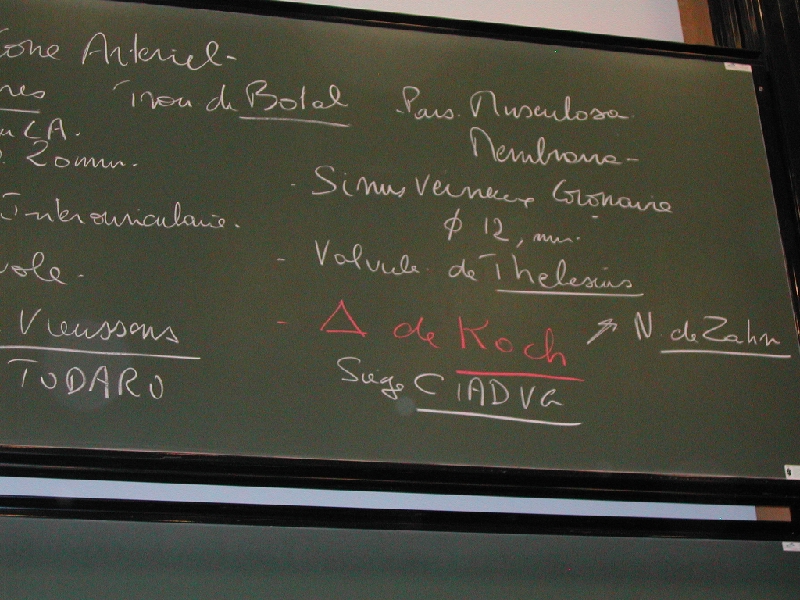 Cone Arteriel-
Trou de Botal
Pars Musculosa
Membrana-
20 mm.
- Sinus Veineux Coronaire
Interauriculaire.
φ 12, mm.
- Valvule de Thebesius
Vieussens
- Δ de Koch ↗ N. de Zahn
TODARO
Siege CIADVG